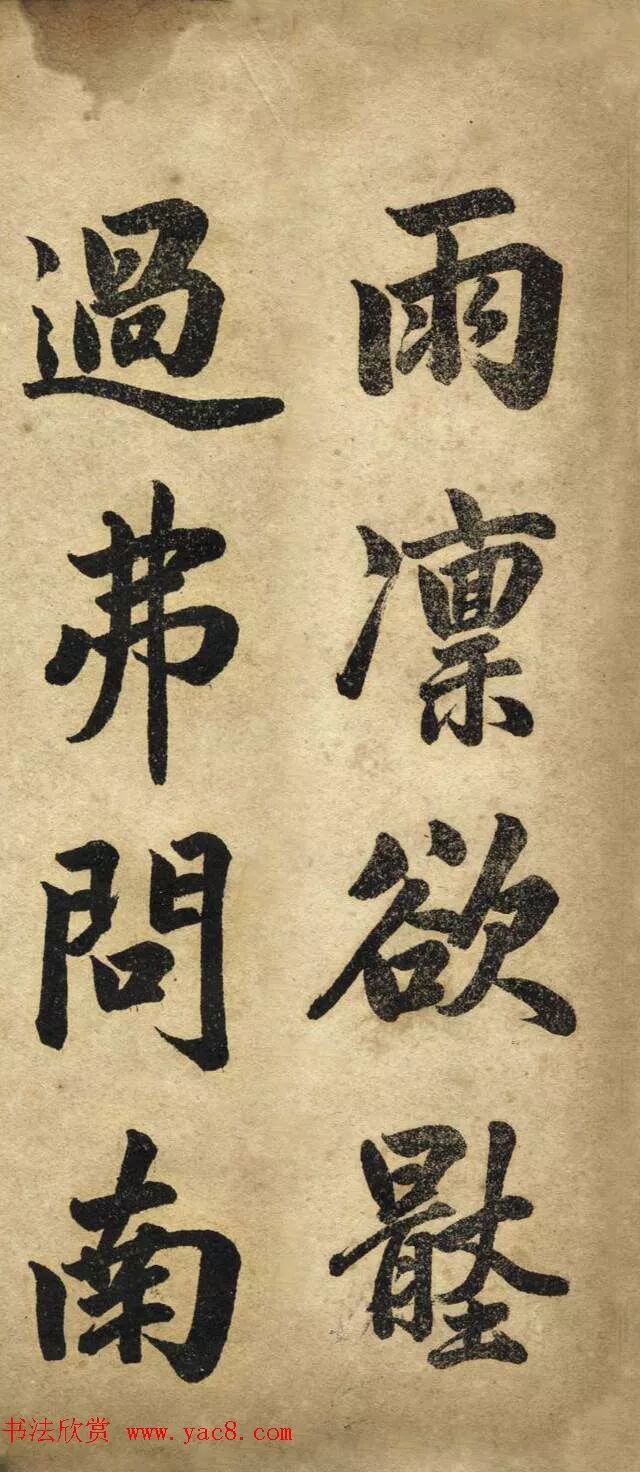 雨凛欲
過弗問南
书法欣赏 www.yac8.com